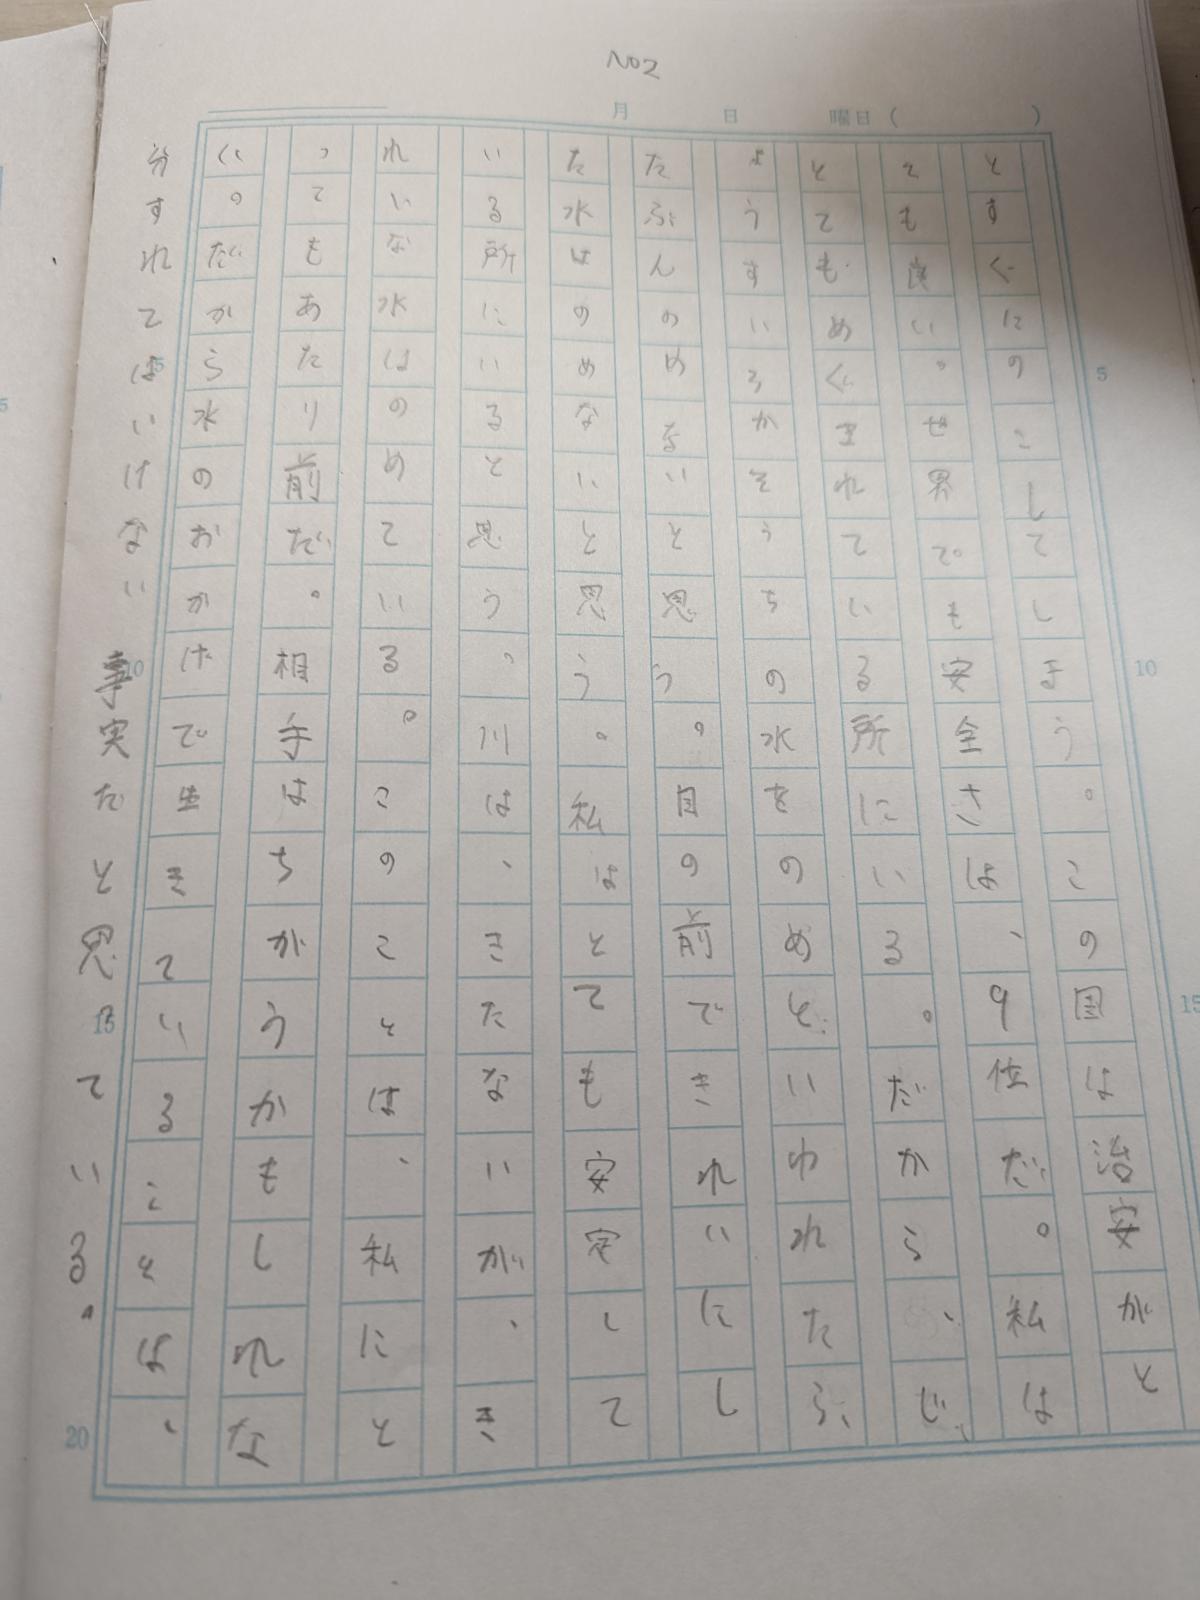 No2
月 日 曜日( )
とすぐにのこしてしまう。この国は治安がと
ても良い。世界でも安全さは、9位だ。私は
とてもめぐまれている所にいる。だから、じ
ょうすいろかそうちの水をのめといわれたら、
たぶんのめないと思う。目の前できれいにし
た水はのめないと思う。私はとても安定して
いる所にいると思う。川は、きたないが、き
れいな水はのめている。このことは、私にと
ってもあたり前だ。相手はちがうかもしれな
い。だから水のおかげで生きていることは、
分すれてはいけない事実だと思っている。
5
10
15
20
5
10
15